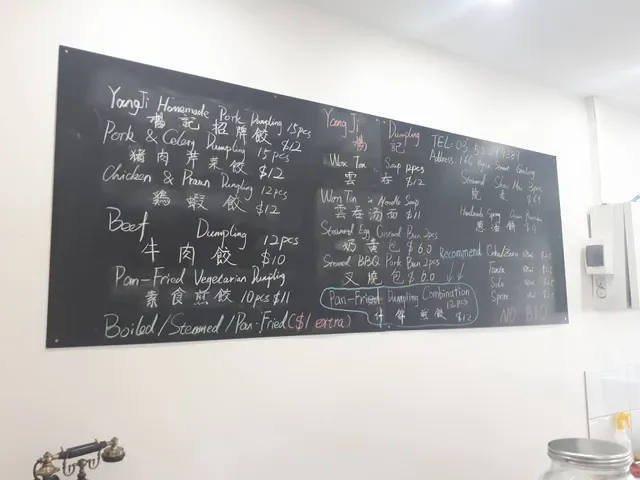 YangJi Homemade Pork Dumpling 15pcs
楊記招牌餃 $12
Pork & Celery Dumpling 15pcs
豬肉芹菜餃 $12
Chicken & Prawn Dumpling 12pcs
鷄蝦餃 $12
Beef Dumpling 12pcs
牛肉餃 $10
Pan-Fried Vegetarian Dumpling
素食煎餃 10pcs $11
Boiled/Steamed/Pan-Fried($1 extra)
YangJi Dumpling
楊記
Won Ton Soup 12pcs
雲吞 $12
Won Ton in Noodle Soup
雲吞汤面 $11
Steamed Egg Custard Bun 2pcs
奶黄包 $6.0
Steamed BBQ Pork Bun 2pcs
叉燒包 $6.0
Pan-Fried Dumpling Combination
12pcs
什錦煎餃 $12
Recommend
TEL: 03
Address: Street Geelong
Steamed Shao Mai 3pcs
燒麦
Handmade Spring Onion
葱油餅
Coke/Zero
Fanta
Solo
Sprite
NO BYO